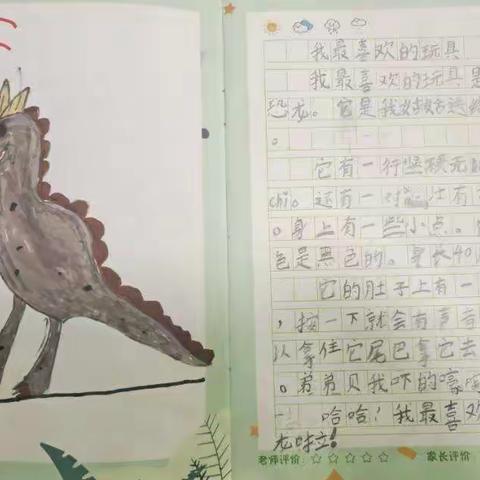 我最喜欢的玩具
我最喜欢的玩具是
恐龙。它是我姑姑送给
。
它有一行坚硬无
chi。还有一对 壮有
。身上有一些小点。
色是黑色的。身长40
它的肚子上有一
，按一下就会有声音
以拿住它尾巴拿它去
。弟弟贝我吓的嚎
哈哈！我最喜欢
龙啦！
老师评价：☆☆☆☆☆ 家长评价